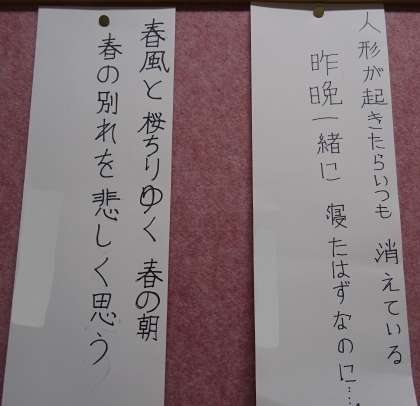 人形が起きたらいつも 消えている
昨晩一緒に 寝たはずなのに……
春風と 桜ちりゆく 春の朝
春の別れを 悲しく思う